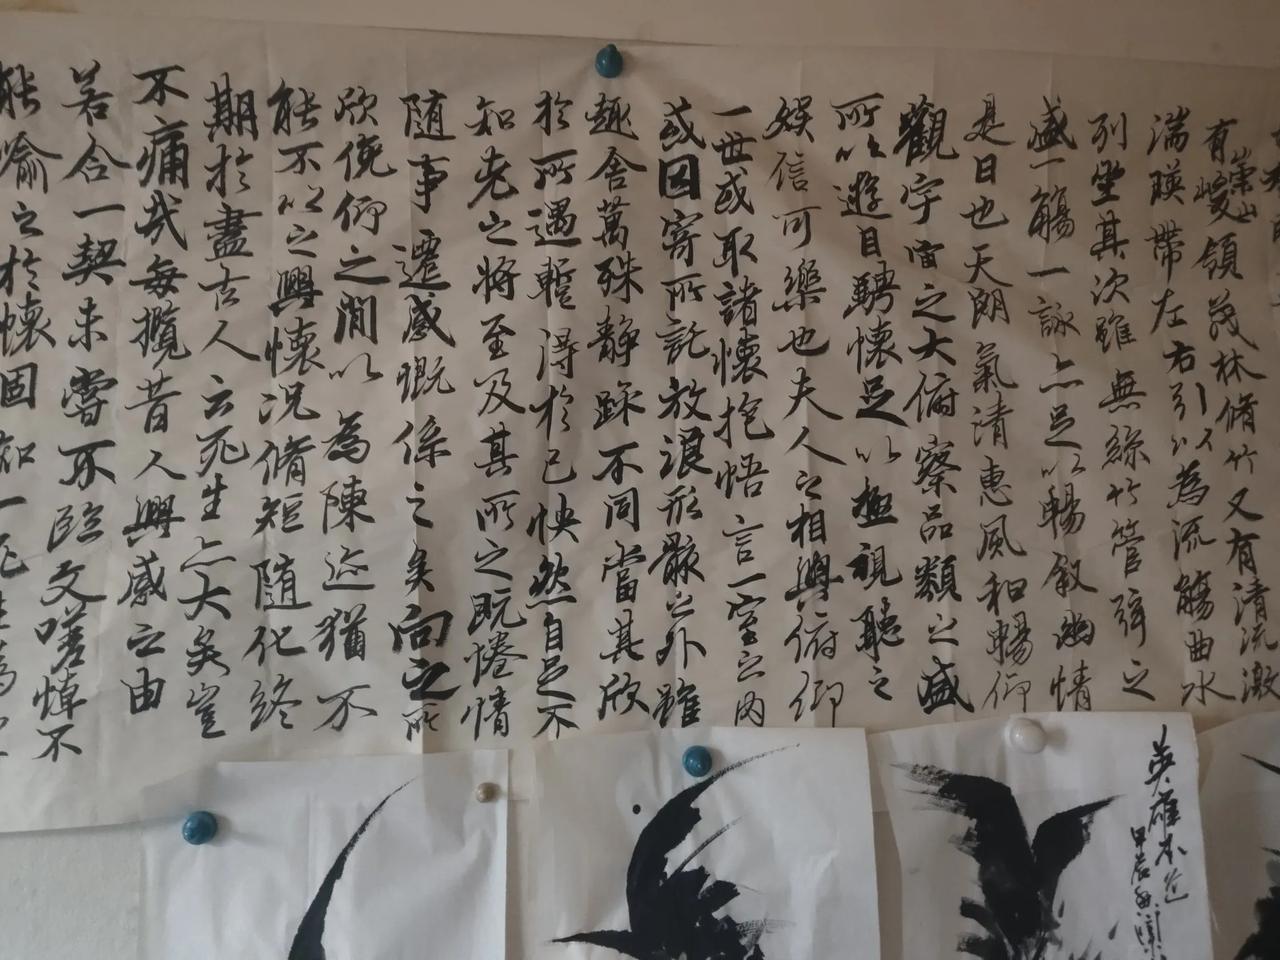 有崇山峻領茂林脩竹又有清流激
湍暎帶左右引以為流觴曲水
列坐其次雖無絲竹管弦之
盛一觴一詠亦足以暢敘幽情
是日也天朗氣清惠風和暢仰
觀宇宙之大俯察品類之盛
所以遊目騁懷足以極視聽之
娛信可樂也夫人之相與俯仰
一世或取諸懷抱悟言一室之內
或因寄所託放浪形骸之外雖
趣舍萬殊靜躁不同當其欣
於所遇蹔得於己怏然自足不
知老之將至及其所之既惓情
隨事遷感慨係之矣向之所
欣俛仰之閒以為陳迹猶不
能不以之興懷況脩短隨化終
期於盡古人云死生亦大矣豈
不痛哉每攬昔人興感之由
若合一契未嘗不臨文嗟悼不
能喻之於懷固知一死生為
英雄本色
甲辰